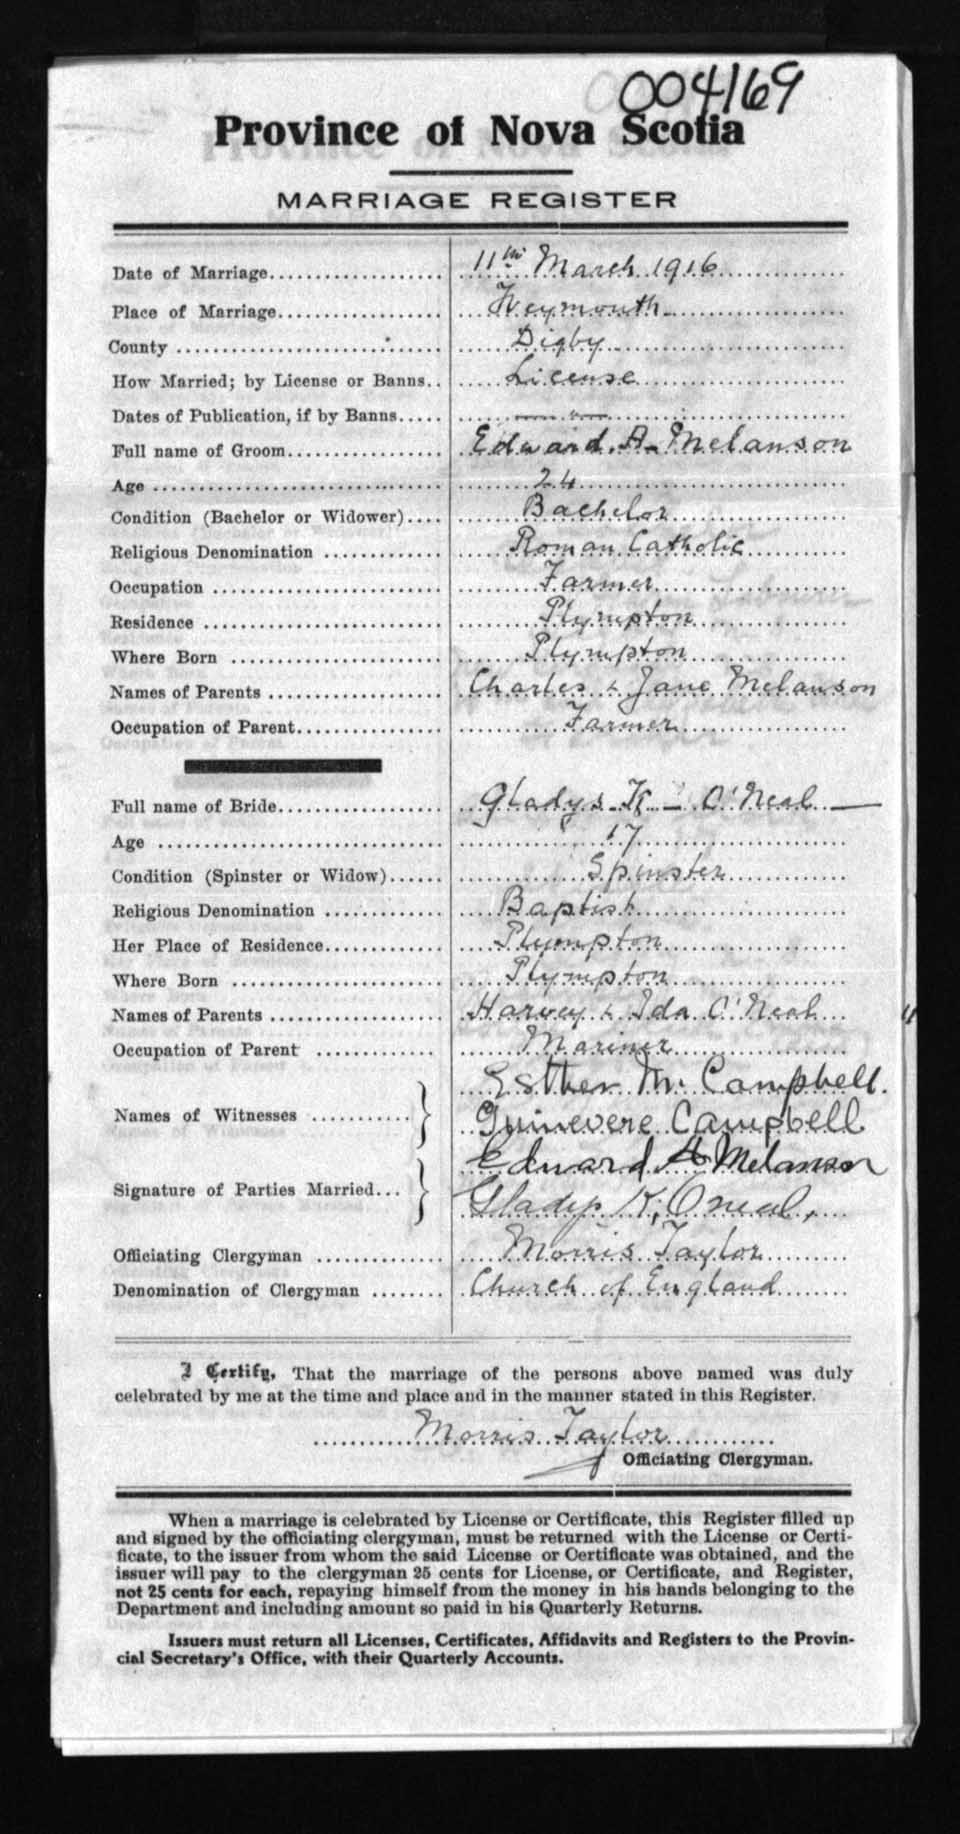 004169
Province of Nova Scotia
MARRIAGE REGISTER
Date of Marriage.................... 11th March 1916
Place of Marriage................... Weymouth
County .............................. Digby
How Married; by License or Banns.. License
Dates of Publication, if by Banns..... — " —
Full name of Groom.................. Edward. A. Melanson
Age .................................. 24
Condition (Bachelor or Widower).... Bachelor
Religious Denomination .............. Roman Catholic
Occupation ........................... Farmer
Residence ............................ Plympton
Where Born ......................... Plympton
Names of Parents ..................... Charles & Jane Melanson
Occupation of Parent................. Farmer
Full name of Bride.................... Gladys K — O'Neal —
Age .................................. 17
Condition (Spinster or Widow)...... Spinster
Religious Denomination .............. Baptist
Her Place of Residence.............. Plympton
Where Born ......................... Plympton
Names of Parents .................... Harvey & Ida O'Neal
Occupation of Parent .............. Mariner
Esther M. Campbell.
Names of Witnesses ........... } Guinevere Campbell
Edward A Melanson
Signature of Parties Married... } Gladys K, Oneal,
Officiating Clergyman ............... Morris Taylor
Denomination of Clergyman ........ Church of England
I Certify, That the marriage of the persons above named was duly
celebrated by me at the time and place and in the manner stated in this Register.
Morris Taylor
Officiating Clergyman.
When a marriage is celebrated by License or Certificate, this Register filled up
and signed by the officiating clergyman, must be returned with the License or Certi-
ficate, to the issuer from whom the said License or Certificate was obtained, and the
issuer will pay to the clergyman 25 cents for License, or Certificate, and Register,
not 25 cents for each, repaying himself from the money in his hands belonging to the
Department and including amount so paid in his Quarterly Returns.
Issuers must return all Licenses, Certificates, Affidavits and Registers to the Provin-
cial Secretary's Office, with their Quarterly Accounts.